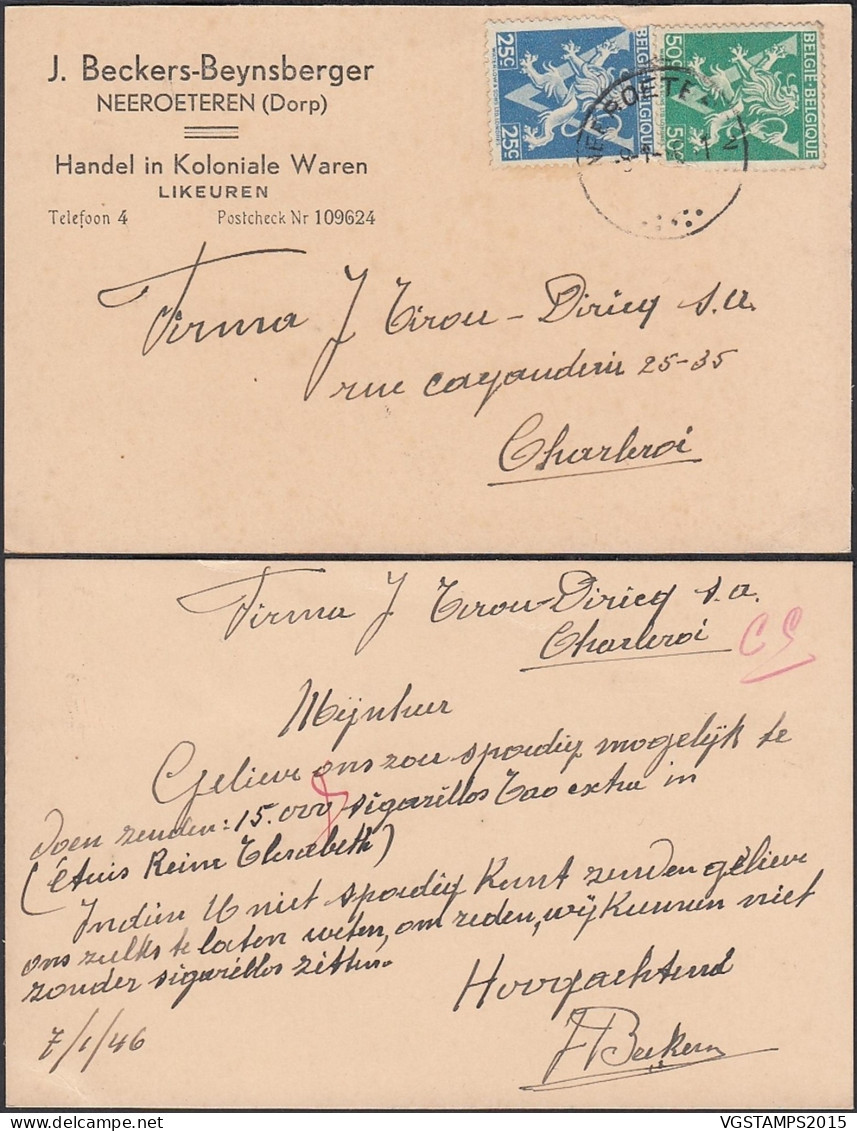 J. Beckers-Beynsberger
NEEROETEREN (Dorp)
Handel in Koloniale Waren
LIKEUREN
Telefoon 4 Postcheck Nr 109624
25c 25c
BELGIE-BELGIQUE
50c 50c
BELGIE-BELGIQUE
NEEROETE
Firma J Tirou-Diricq s.a.
rue cayauderie 25-35
Charleroi
Firma J. Tirou-Diricq s.a.
Charleroi
Mijnheer
Gelieve ons zoo spoedig mogelijk te
doen zenden: 15.000 sigarillos Tao extra in
(étuis Reine Elisabeth)
Indien U niet spoedig kunt zenden gelieve
ons zulks te laten weten, om reden, wij kunnen niet
zonder sigarillos zitten.
Hoogachtend
J Beckers
7/1/46
VGSTAMPS2015